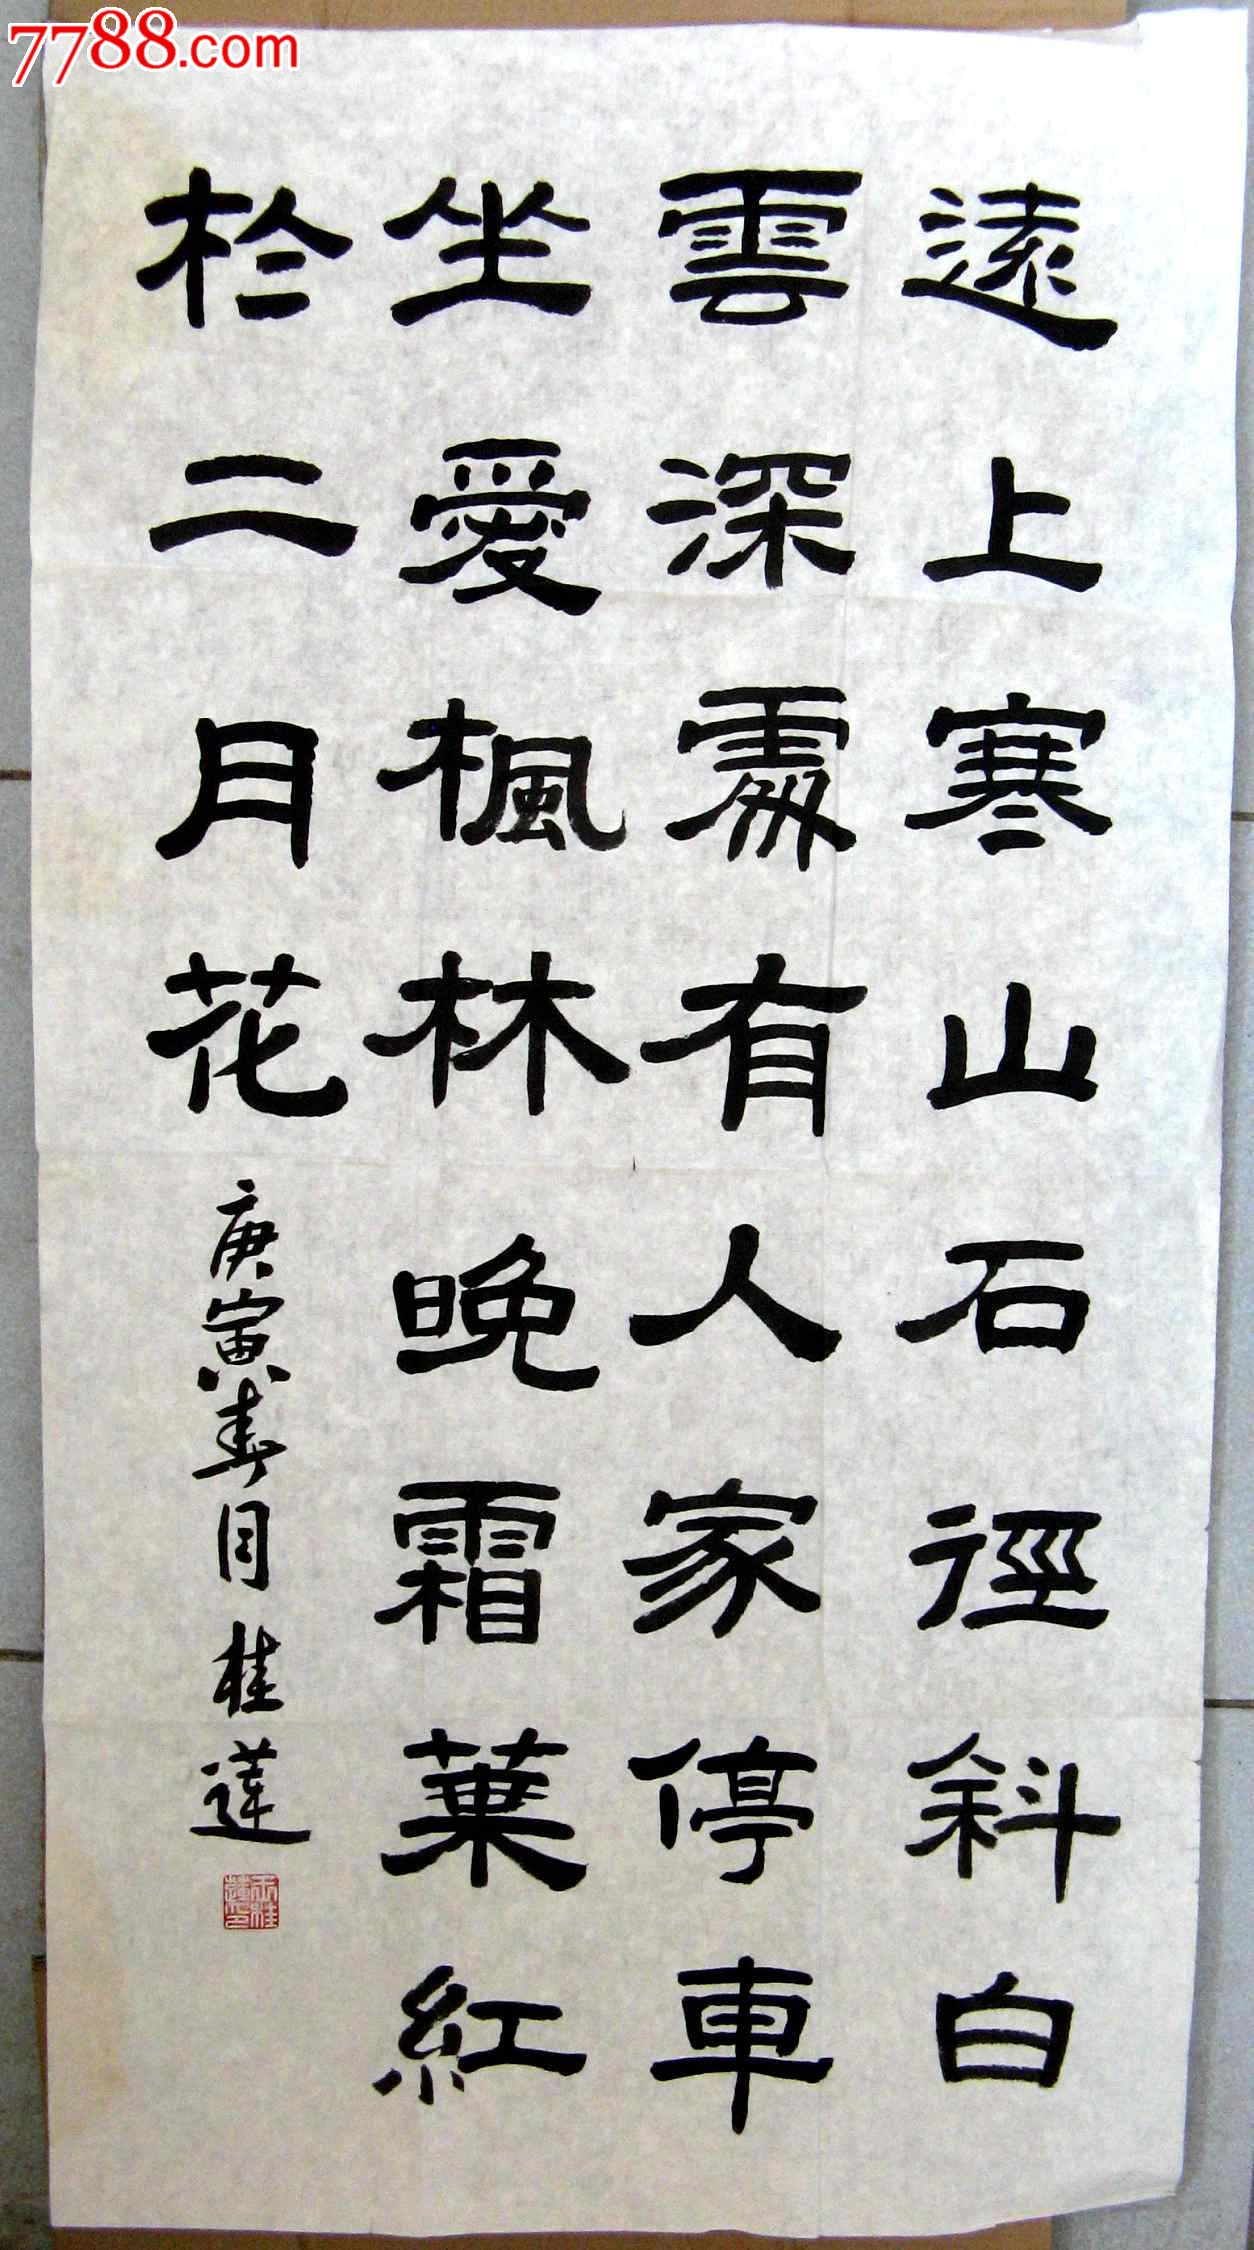 遠上寒山石徑斜白
雲深處有人家停車
坐愛楓林晚霜葉紅
於二月花
庚寅春月桂蓮
7788.com